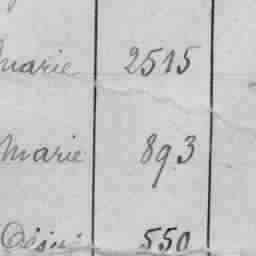 marie 2515
marie 893
550